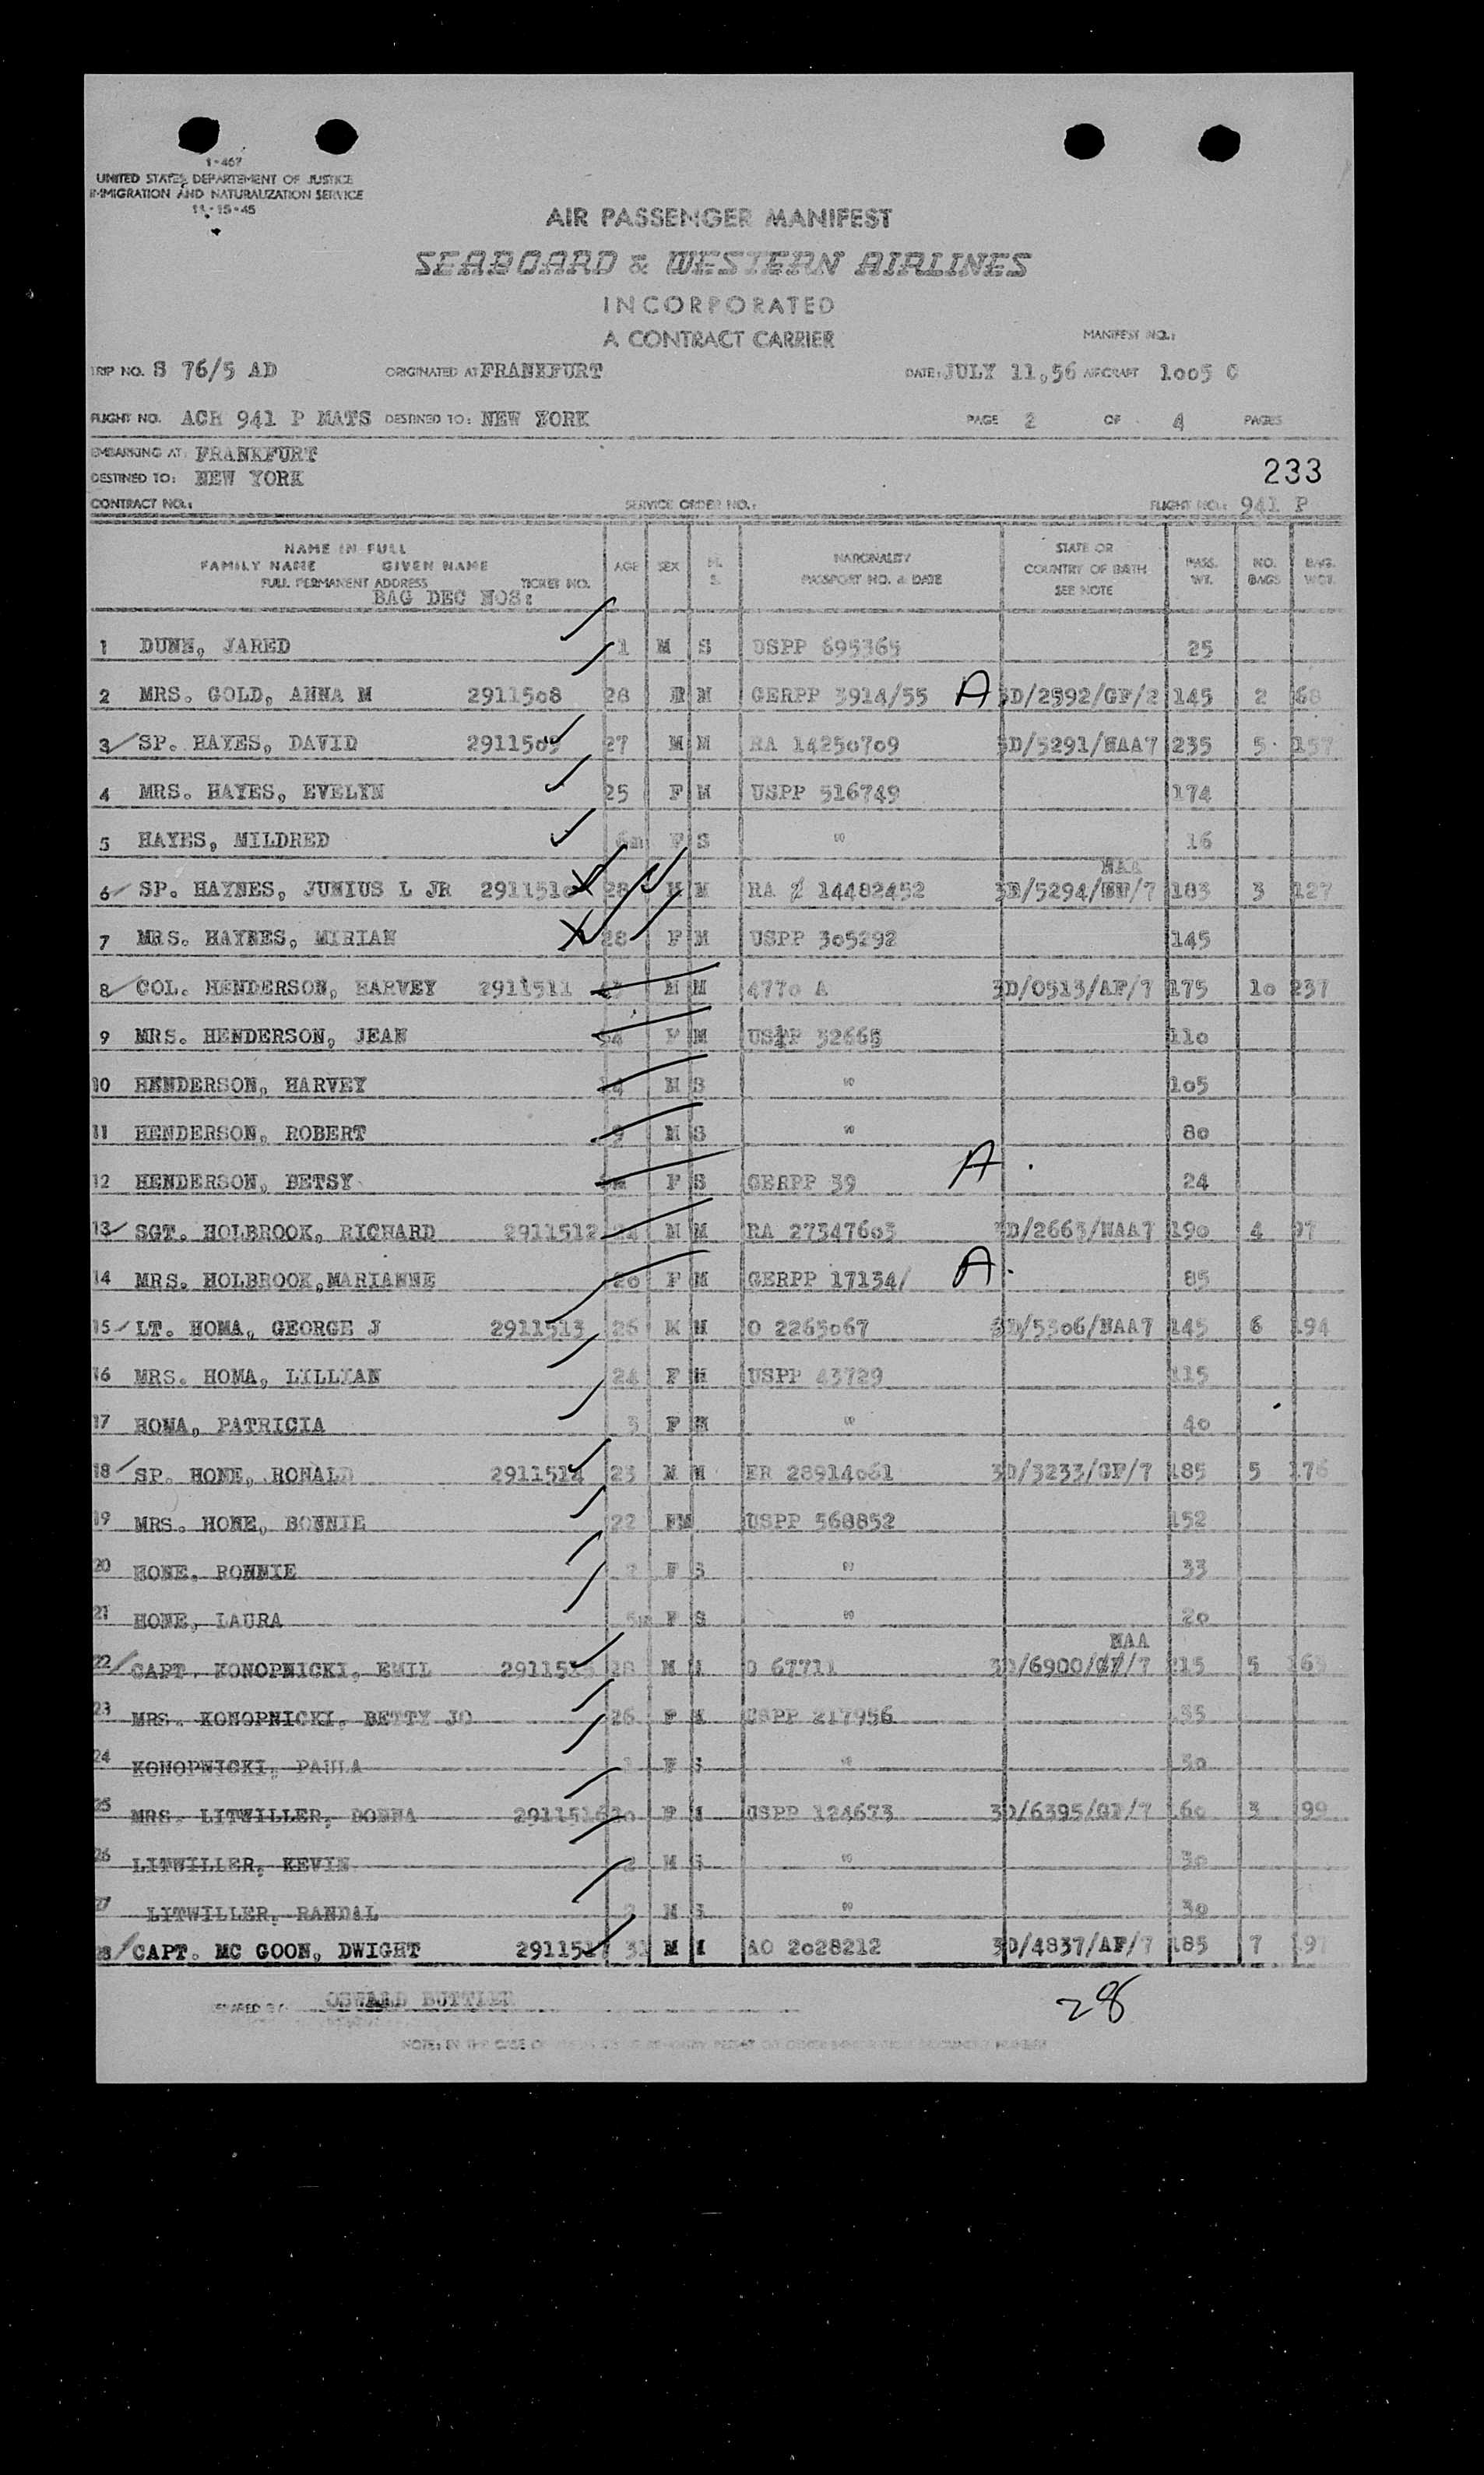 1-467
UNITED STATES DEPARTEMENT OF JUSTICE
IMMIGRATION AND NATURALIZATION SERVICE
11-15-45
AIR PASSENGER MANIFEST
SEABOARD & WESTERN AIRLINES
INCORPORATED
A CONTRACT CARRIER
MANIFEST NO.:
TRIP NO. S 76/5 AD ORIGINATED AT FRANKFURT DATE: JULY 11,56 AIRCRAFT 1005 C
FLIGHT NO. ACH 941 P MATS DESTINED TO: NEW YORK PAGE 2 OF 4 PAGES
EMBARKING AT: FRANKFURT
233
DESTINED TO: NEW YORK
CONTRACT NO.: SERVICE ORDER NO.: FLIGHT NO.: 941 P
NAME IN FULL
FAMILY NAME GIVEN NAME
FULL PERMANENT ADDRESS TICKET NO.
BAG DEC NOS:
AGE SEX M. S. NATIONALITY PASSPORT NO. & DATE STATE OR COUNTRY OF BIRTH SEE NOTE PASS. WT. NO. BAGS BAG. WGT.
1 DUNN, JARED 1 M S USPP 695365 25
2 MRS. GOLD, ANNA M 2911508 28 M GERPP 3914/55 A 3D/2392/GF/2 145 2 68
3 SP. HAYES, DAVID 2911509 27 M M RA 14250709 3D/5291/NAA7 235 5 157
4 MRS. HAYES, EVELYN 25 F M USPP 516749 174
5 HAYES, MILDRED 6m F S " 16
NAA
6 SP. HAYNES, JUNIUS L JR 2911510 28 M M RA 14482452 3D/5294/ /7 183 3 127
7 MRS. HAYNES, MIRIAN 28 F M USPP 305292 145
8 COL. HENDERSON, HARVEY 2911511 M M 4770 A 3D/0513/AF/7 175 10 237
9 MRS. HENDERSON, JEAN F M USPP 32665 110
10 HENDERSON, HARVEY M S " 105
11 HENDERSON, ROBERT 9 M S " 80
12 HENDERSON, BETSY F S GERPP 39 A 24
13 SGT. HOLBROOK, RICHARD 2911512 M M RA 27347603 3D/2663/NAA7 190 4 97
14 MRS. HOLBROOK,MARIANNE 20 F M GERPP 17134/ A 85
15 LT. HOMA, GEORGE J 2911513 26 M M O 2265067 3D/5306/NAA7 145 6 194
16 MRS. HOMA, LILLIAN 24 F M USPP 43729 115
17 HOMA, PATRICIA 3 F M " 40
18 SP. HONE, RONALD 2911514 23 M M ER 28914061 3D/3233/GF/7 185 5 176
19 MRS. HONE, BONNIE 22 FM USPP 568852 152
20 HONE, RONNIE 2 F S " 33
21 HONE, LAURA 5m F S " 20
NAA
22 CAPT. KONOPNICKI, EMIL 2911515 28 M M O 67711 3D/6900/GF/7 215 5 163
23 MRS. KONOPNICKI, BETTY JO 26 F M USPP 217956
24 KONOPNICKI, PAULA F S " 30
25 MRS. LITWILLER, DONNA 2911516 20 F M USPP 124673 3D/6395/GF/7 160 3 199
26 LITWILLER, KEVIN 2 M S " 30
27 LITWILLER, RANDAL M S " 30
28 CAPT. MC GOON, DWIGHT 2911517 31 M M AO 2028212 3D/4837/AF/7 185 7 197
PREPARED BY: OSWALD
28
NOTE: IN THE CASE OF